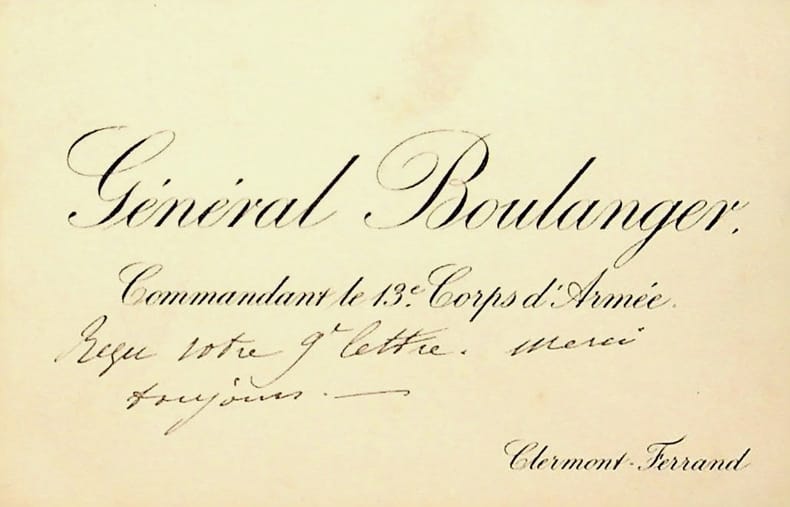 Général Boulanger.
Commandant le 13e. Corps d'Armée.
Reçu votre 9e lettre. Merci
toujours. —
Clermont-Ferrand